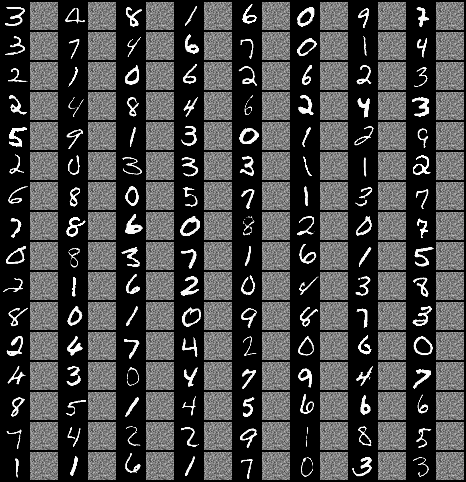 3 4 8 1 6 0 9 7
3 7 4 6 7 0 1 4
2 1 0 6 2 6 2 3
2 4 8 4 6 2 4 3
5 9 1 3 0 1 2 9
2 0 3 3 3 1 1 2
6 8 0 5 7 1 3 7
7 8 6 0 8 2 0 7
0 8 3 7 1 6 1 5
2 1 6 2 0 4 3 8
8 0 1 0 9 8 7 3
2 4 7 4 2 0 6 0
4 3 0 4 7 9 4 7
8 5 1 4 5 6 6 6
7 4 2 2 9 1 8 5
1 1 6 1 7 0 3 3